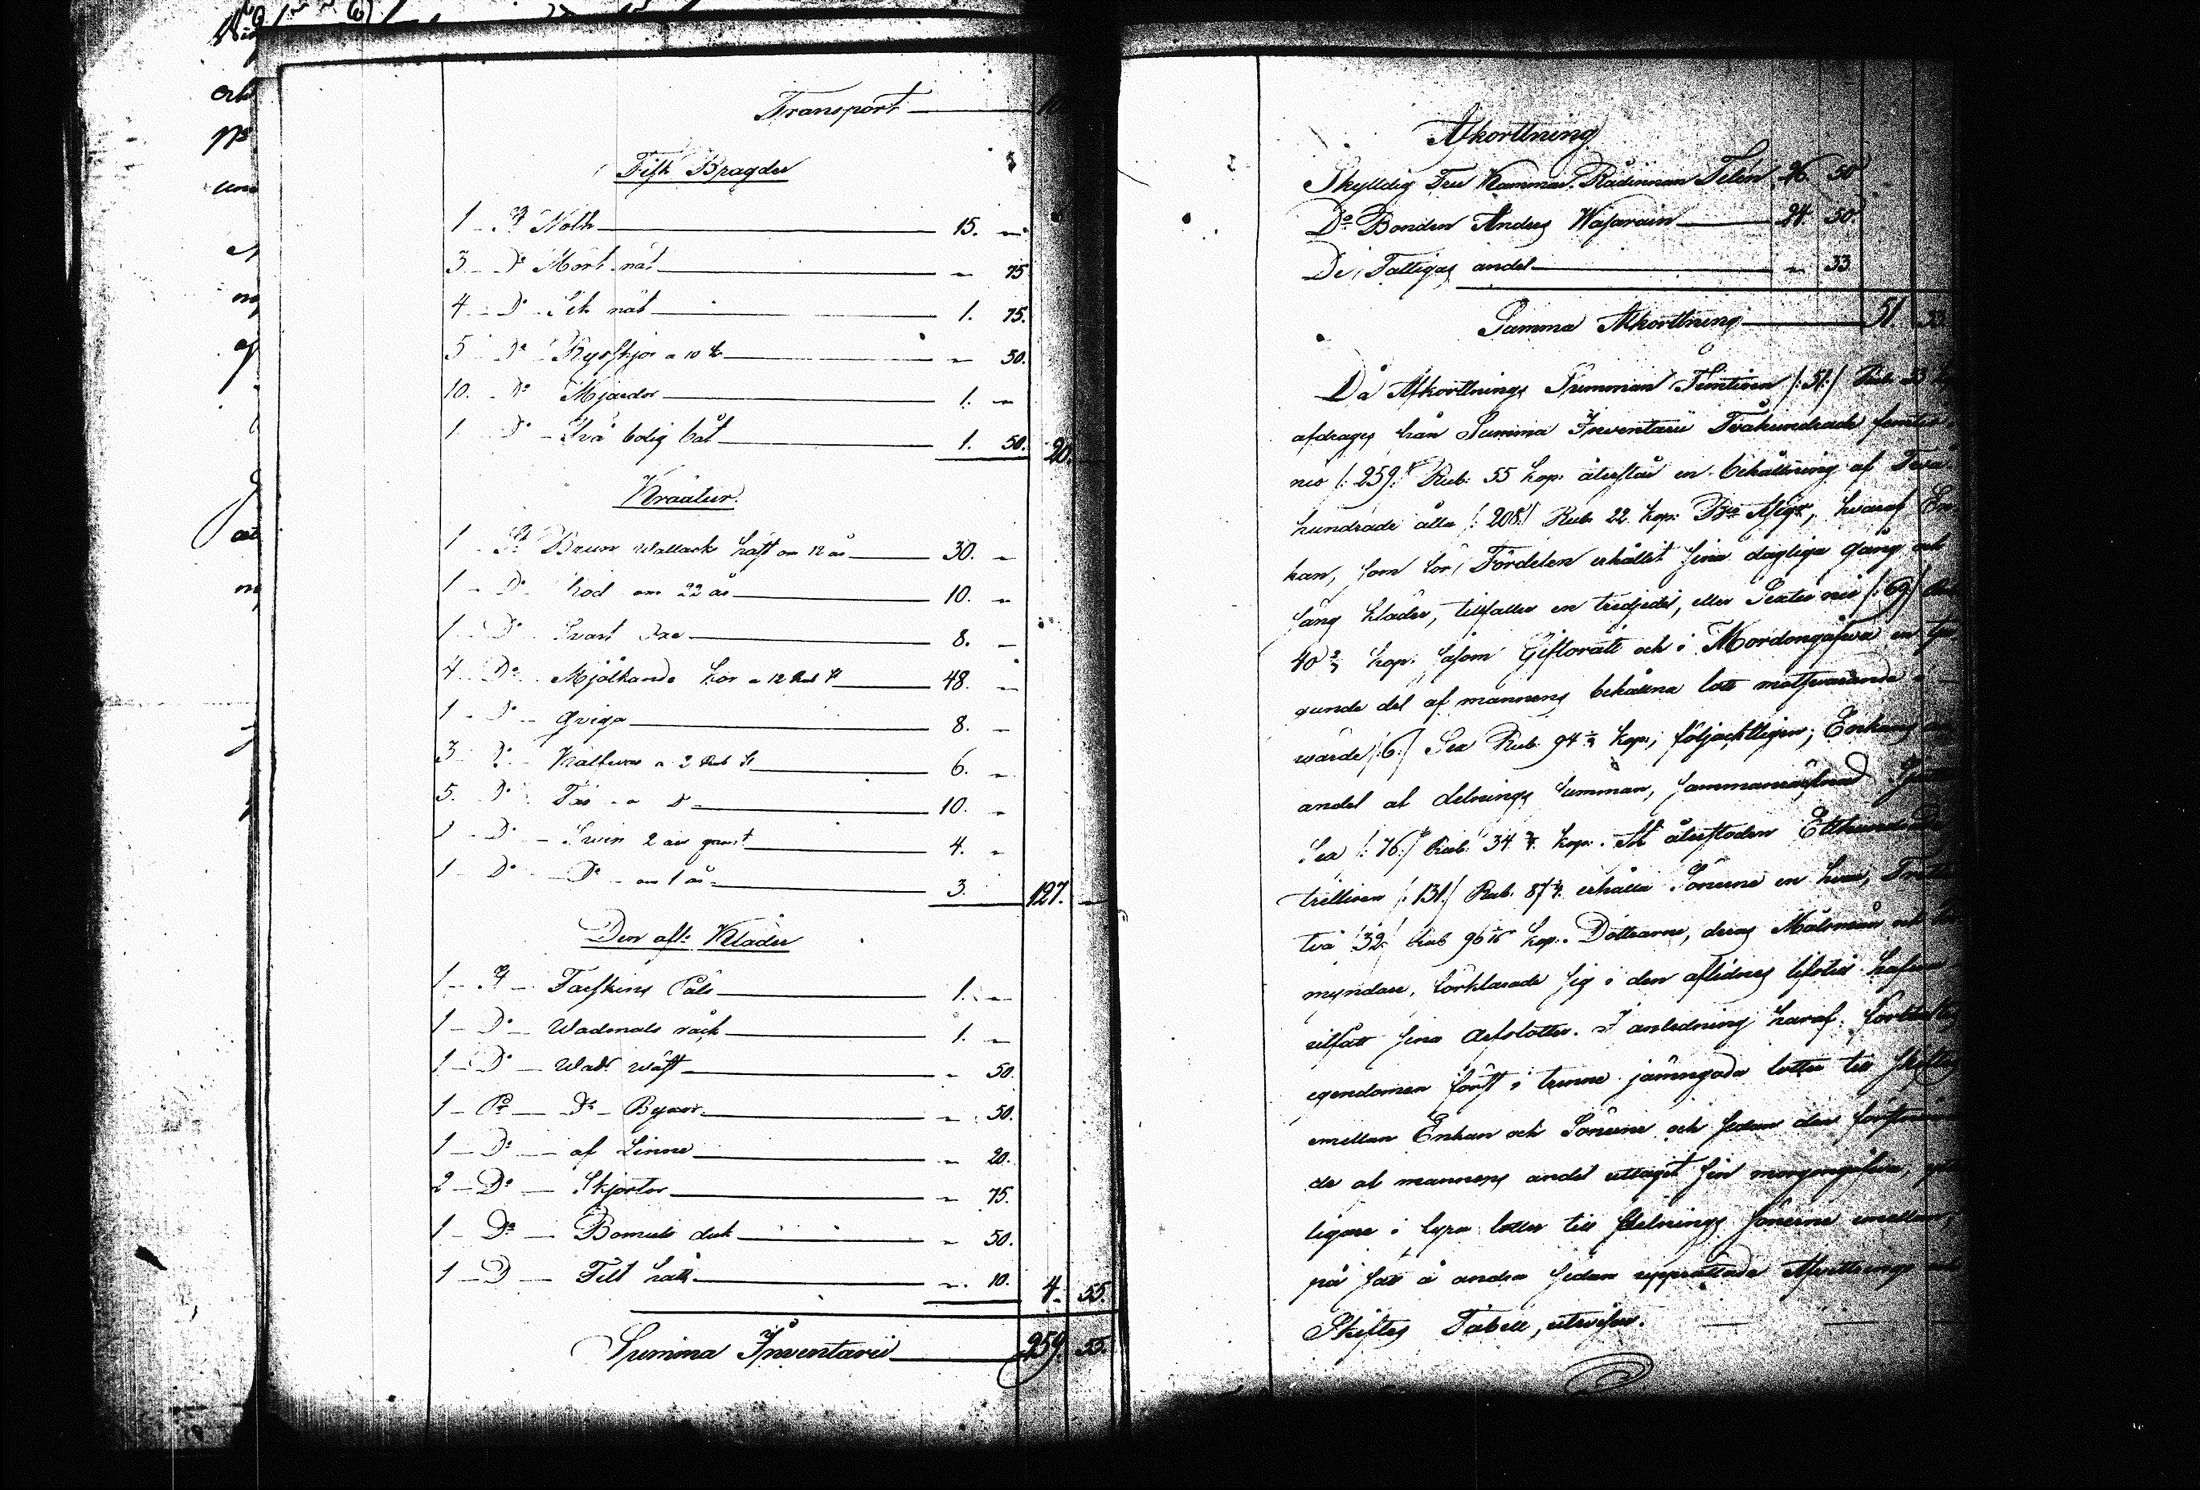 Transport
Fisk Bragder
1 St Noth 15. "
3 Do Mört nät " 75
4 Do Sik nät 1. 75.
5 Do Ryssjor a 10 k " 50.
10. Do Mjärdor 1. "
1 Do Två bolig båt 1. 50. 20.
Kräatur.
1 St Brun Wallack häst om 12 år 30. "
1 Do Röd om 22 år 10. "
1 Do Svart Oxe 8. "
4 Do Mjölkande kor a 12 Rub St 48. "
1 Do Qviga 8. "
3 Do Kalfvar a 2 Rub St 6. "
5. Do Får a Do 10. "
1 Do Svin 2 års 4. "
1 Do Do om 1 år 3. 127. "
Den afl: Kläder
1 St Fårskins Päls 1. "
1 Do Wadmals råck 1. "
1 Do Wadm wäst " 50.
1 Pr Do Byxor " 50.
1 Do af Linne " 20.
2 Do Skjortor " 75.
1 Do Bomuls duk " 50.
1 D Filt hatt " 10. 4. 55.
Summa Inventarii 259. 55.
Afkorttning
Skylldig Fru Kammar Rådinnan 26 50
Do Bonden Anders 24. 50.
De Fattigas andel " 33
Summa Afkorttning 51. 33.
Då Afkorttnings Summan Femtioen /:51:/ Rub 33
afdrages från Summa Inventarii Tvåhundrade femtio
nio /:259:/ Rub: 55 kop: återstår en behållning af Två
hundrade åtta /:208:/ Rub 22 kop: Bco Assign, hvaraf
kan, som för Fördelen erhållit sina dagliga gång och
säng kläder, tillfaller en tredjedel, eller Sextio nio /:69:/ Rub
40 2/3 kop: såsom Giftorätt och i Mordongåfva en
gunde del af mannens behållna lott motsvarande i
wärde /:6:/ Sex Rub. 94 kop:; följacktligen; Enkans
andel af delnings summan, sammanräknad
Sex /:76:/ Rub: 34 kop: Af återstoden Etthundrade
trettioen /:131:/ Rub. 87 erhålla Sönerne en hvar,
två /:32:/ Rub 96 kop. Döttrarne, deras Målsmän och
myndare, förklarade sig i den aflidnes lifstid hafva
utfått sina Arfslotter. I anledning häraf
egendomen först i trenne jämngoda lotter till skiftes
emellan Enkan och Sönerne och sedan den
de af mannens andel uttagit sin morgongåfva,
ligare i fyra lotter till delnings Sönerne emellan,
på sätt å andra sidan upprättade Afvittrings och
Skiftes Tabell, utvisar.